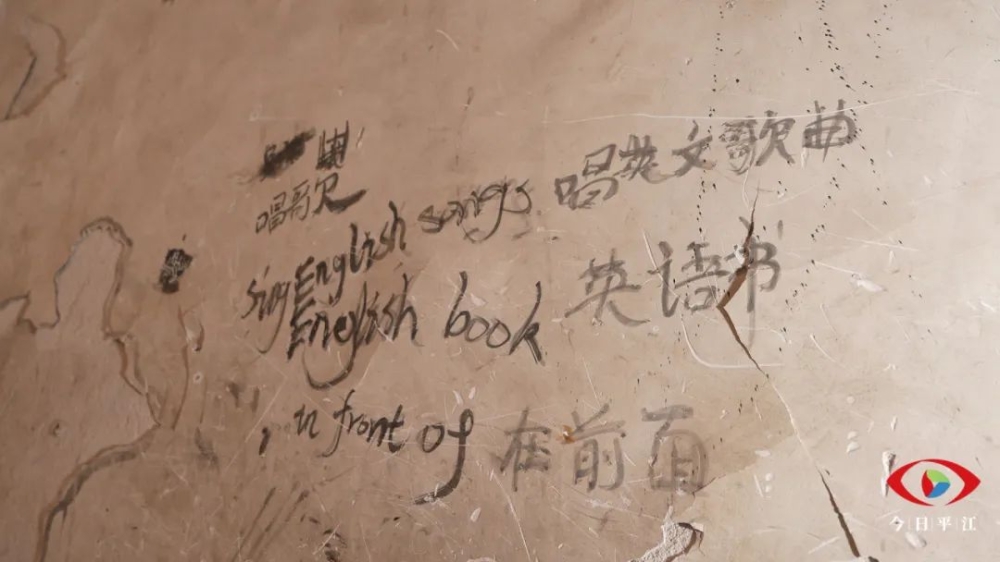 唱歌
sing English songs 唱英文歌曲
English book 英语书
in front of 在前面
今日平江